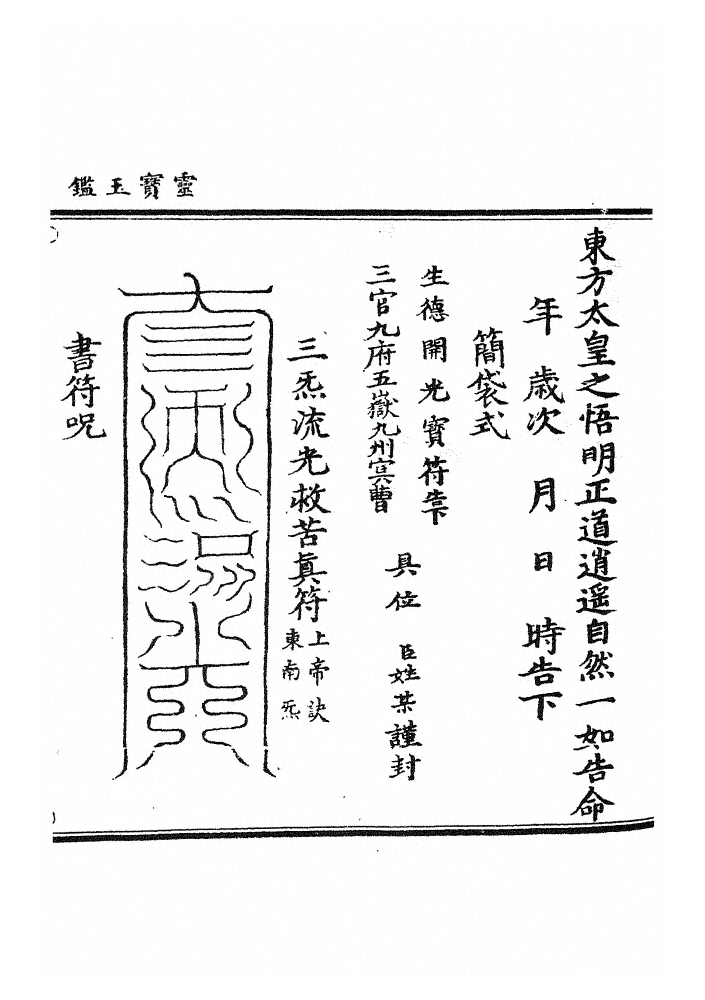 靈寶玉鑑
東方太皇之悟明正道逍遥自然一如告命
年 歲次 月 日 時告下
簡袋式
生德開光寶符告下
三官九府五嶽九州冥曹
具位 臣姓某謹封
三炁流光救苦眞符
上帝訣
東南炁
書符呪